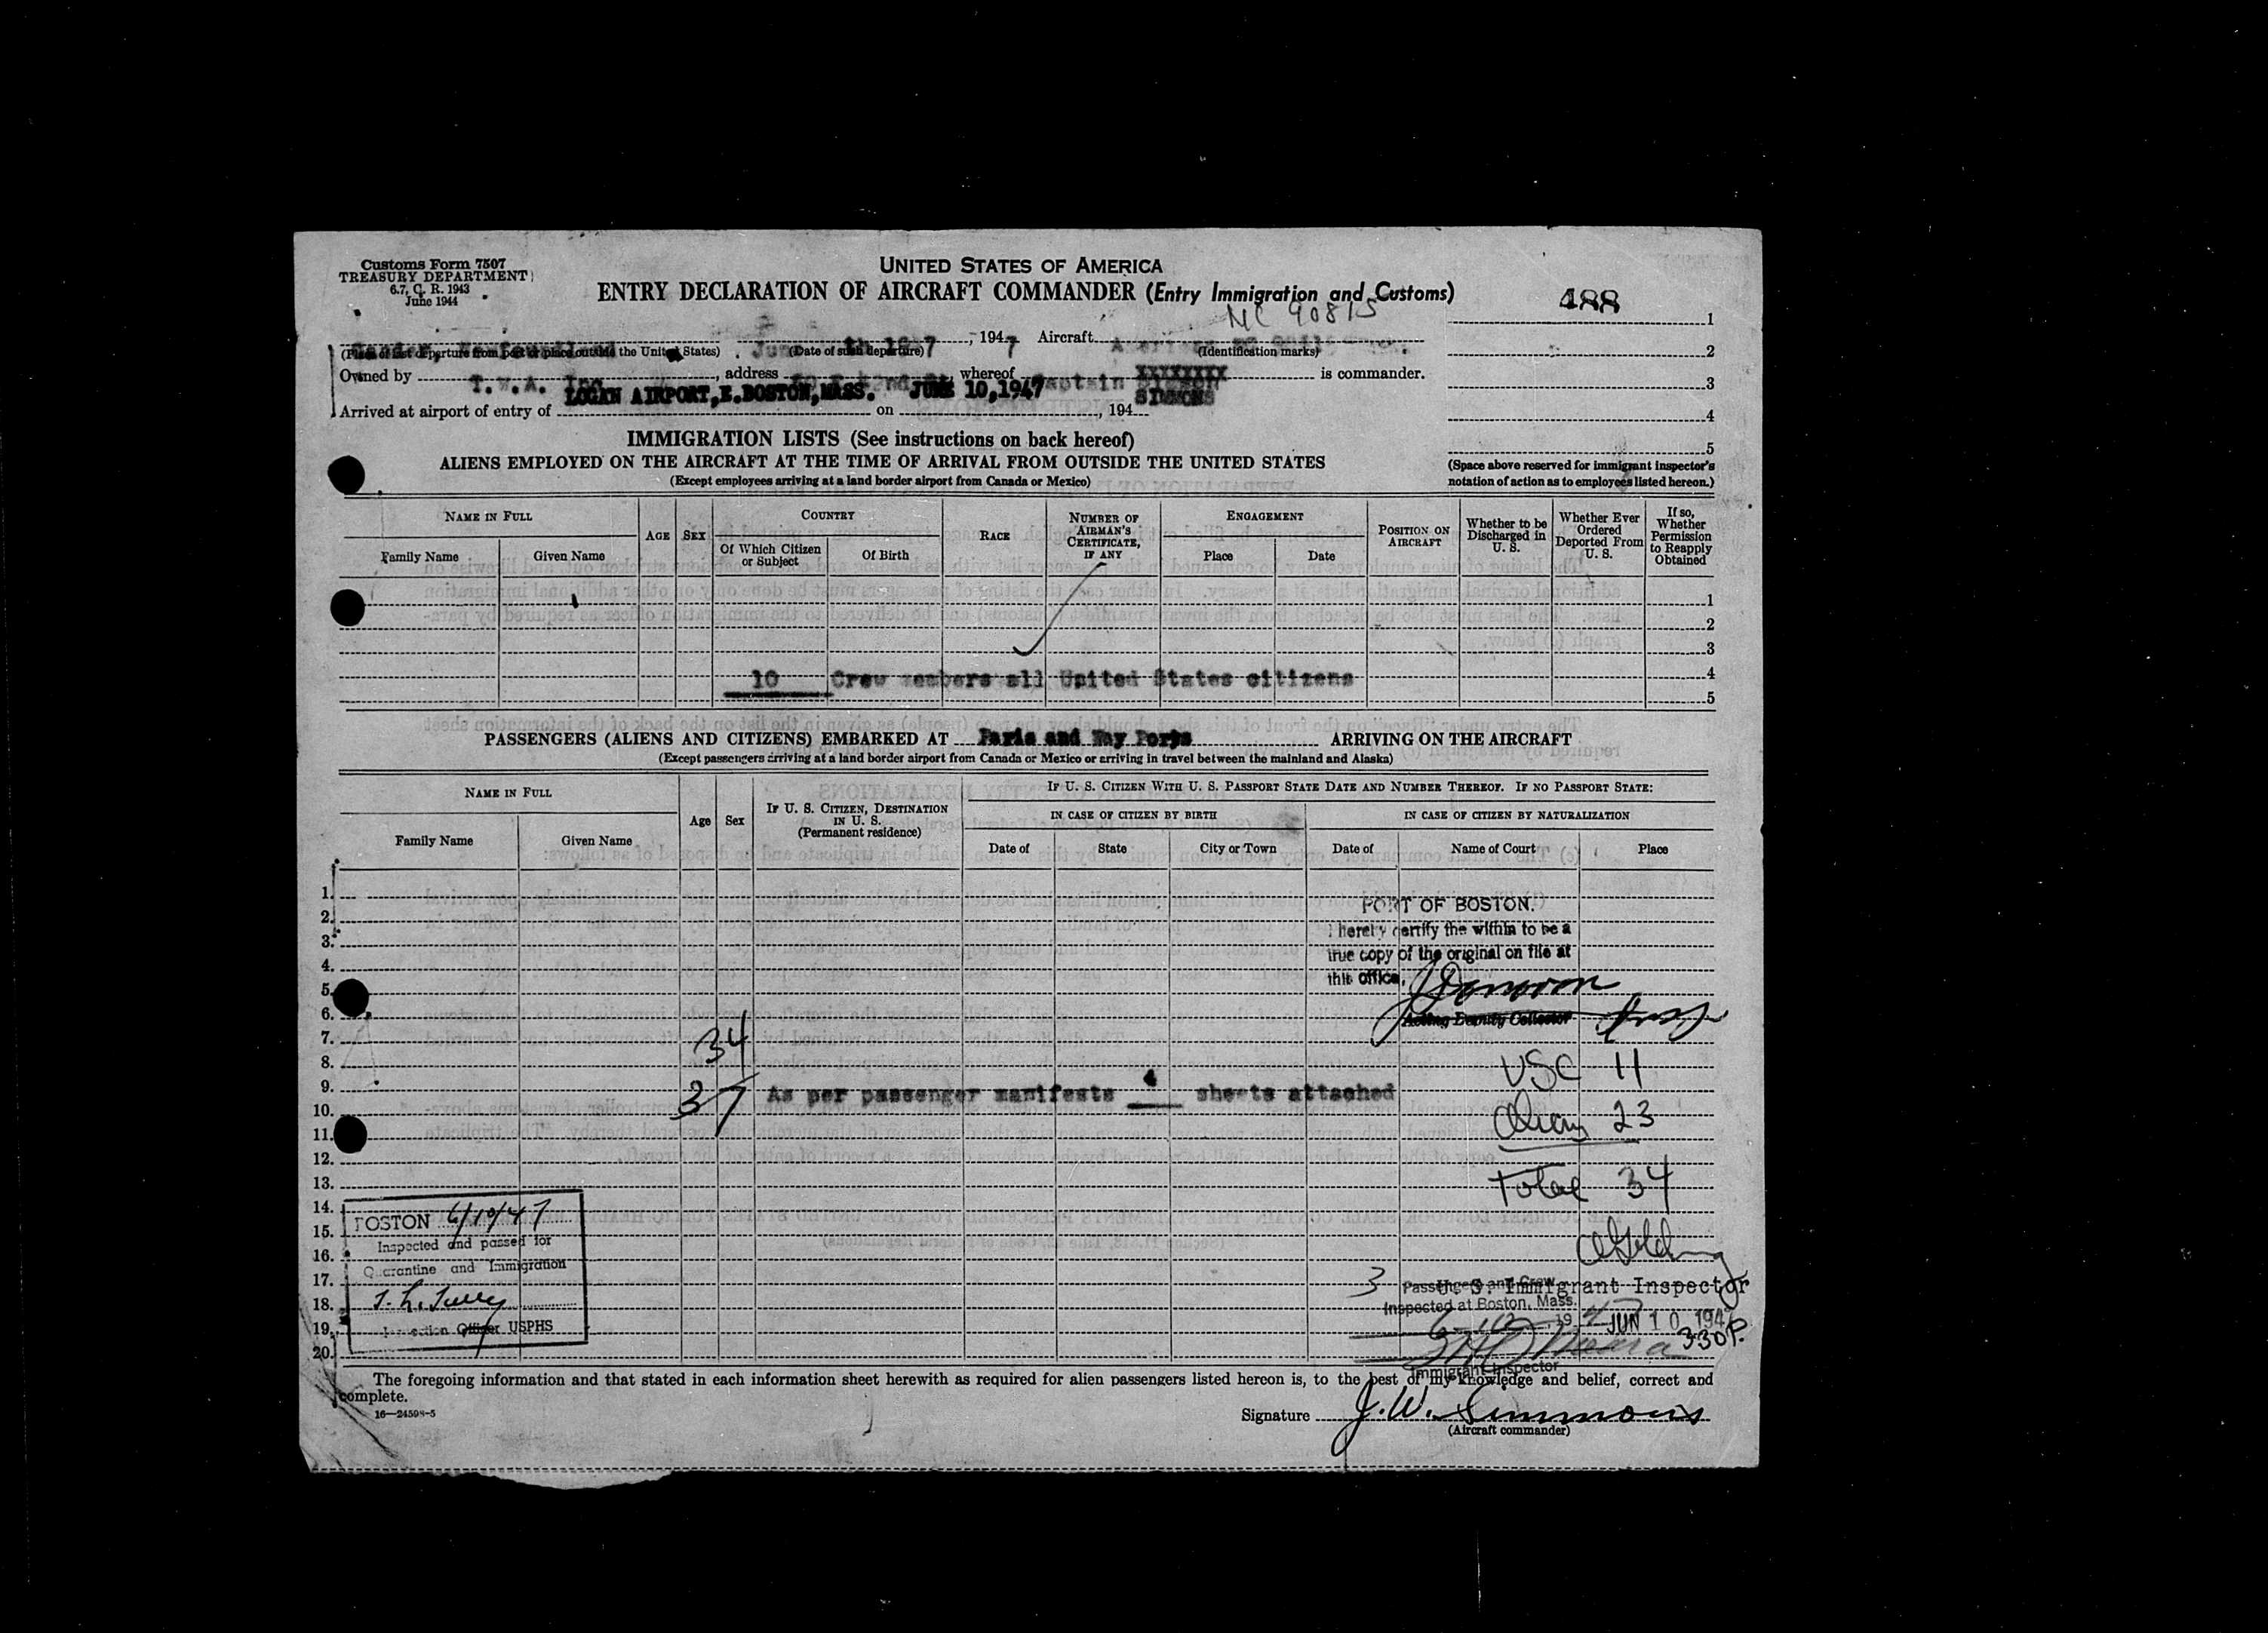 Customs Form 7507
TREASURY DEPARTMENT
6.7, C. R. 1943
June 1944
UNITED STATES OF AMERICA
ENTRY DECLARATION OF AIRCRAFT COMMANDER (Entry Immigration and Customs)
488
NC 90815
, 1947 Aircraft
(Place of last departure from port or place outside the United States) (Date of such departure) (Identification marks)
Owned by T.W.A. , address whereof Captain XXXXXXXX is commander.
LOGAN AIRPORT, E. BOSTON, MASS. JUNE 10, 1947 SIMMONS
Arrived at airport of entry of on , 194
1
2
3
4
5
(Space above reserved for immigrant inspector's
notation of action as to employees listed hereon.)
IMMIGRATION LISTS (See instructions on back hereof)
ALIENS EMPLOYED ON THE AIRCRAFT AT THE TIME OF ARRIVAL FROM OUTSIDE THE UNITED STATES
(Except employees arriving at a land border airport from Canada or Mexico)
NAME IN FULL
Family Name
Given Name
AGE
SEX
COUNTRY
Of Which Citizen
or Subject
Of Birth
RACE
NUMBER OF
AIRMAN'S
CERTIFICATE,
IF ANY
ENGAGEMENT
Place
Date
POSITION ON
AIRCRAFT
Whether to be
Discharged in
U. S.
Whether Ever
Ordered
Deported From
U. S.
If so,
Whether
Permission
to Reapply
Obtained
1
2
3
10 Crew members all United States citizens 4
5
PASSENGERS (ALIENS AND CITIZENS) EMBARKED AT Paris and Way Ports ARRIVING ON THE AIRCRAFT
(Except passengers arriving at a land border airport from Canada or Mexico or arriving in travel between the mainland and Alaska)
NAME IN FULL
Family Name
Given Name
Age
Sex
IF U. S. CITIZEN, DESTINATION
IN U. S.
(Permanent residence)
IF U. S. CITIZEN WITH U. S. PASSPORT STATE DATE AND NUMBER THEREOF. IF NO PASSPORT STATE:
IN CASE OF CITIZEN BY BIRTH
Date of
State
City or Town
IN CASE OF CITIZEN BY NATURALIZATION
Date of
Name of Court
Place
1.
2.
3.
4.
5.
6.
7.
8.
9.
10.
11.
12.
13.
14.
15.
16.
17.
18.
19.
20.
PORT OF BOSTON.
I hereby certify the within to be a
true copy of the original on file at
this office,
Acting Deputy Collector
34
37 As per passenger manifests sheets attached
USC 11
Alien 23
Total 34
BOSTON 6/10/47
Inspected and passed for
Quarantine and Immigration
Inspection Officer USPHS
U. S. Immigrant Inspector
3 Passengers and Crew
Inspected at Boston, Mass.
6-10, 1947
JUN 10 1947
330P.
Immigrant Inspector
The foregoing information and that stated in each information sheet herewith as required for alien passengers listed hereon is, to the best of my knowledge and belief, correct and
complete.
16—24598-5
Signature J. W. Simmons
(Aircraft commander)